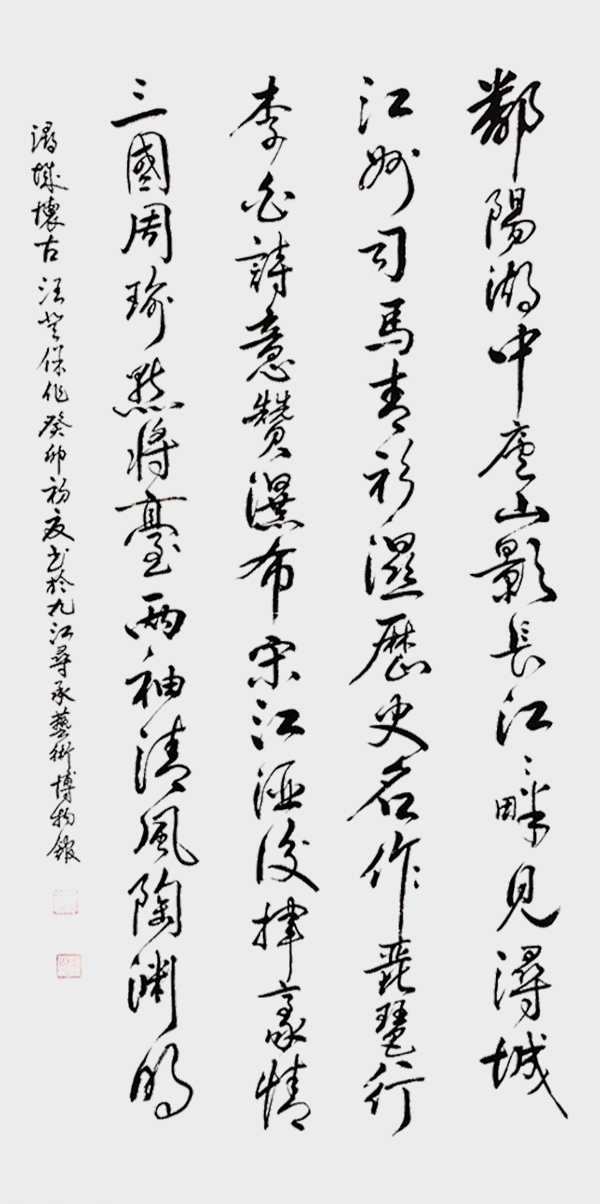 鄱陽湖中廬山影長江々畔見潯城
江州司馬青衫濕歷史名作琵琶行
李白詩意贊瀑布宋江酒後揮豪情
三國周瑜點將臺兩袖清風陶淵明
潯城懷古 汪保作癸卯初夏書於九江尋承藝術博物館